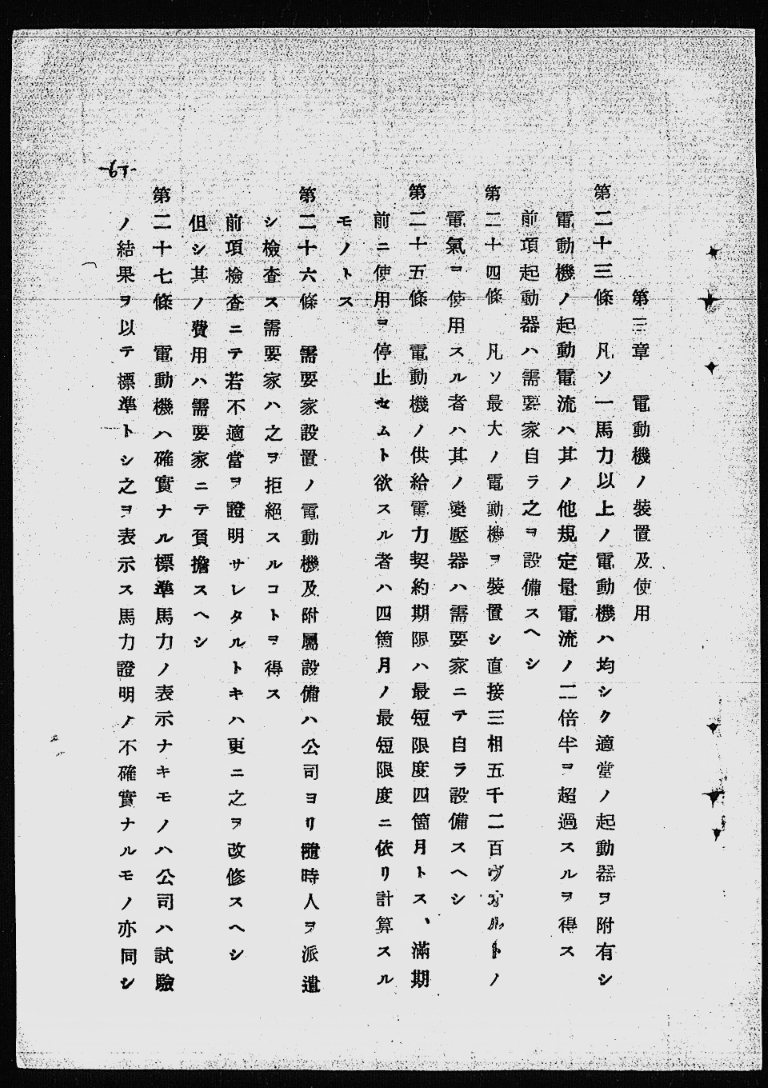 第三章　電動機ノ裝置及使用
第二十三條　凡ソ一馬力以上ノ電動機ハ均シク適當ノ起動器ヲ附有シ
電動機ノ起動電流ハ其ノ他規定量電流ノ二倍半ヲ超過スルヲ得ス
前項起動器ハ需要家自ラ之ヲ設備スヘシ
第二十四條　凡ソ最大ノ電動機ヲ裝置シ直接三相五千二百ヴオルトノ
電氣ヲ使用スル者ハ其ノ變壓器ハ需要家ニテ自ラ設備スヘシ
第二十五條　電動機ノ供給電力契約期限ハ最短限度四箇月トス、滿期
前ニ使用ヲ停止セムト欲スル者ハ四箇月ノ最短限度ニ依リ計算スル
モノトス
第二十六條　需要家設置ノ電動機及附屬設備ハ公司ヨリ隨時人ヲ派遣
シ檢查ス需要家ハ之ヲ拒絕スルコトヲ得ス
前項檢查ニテ若不適當ヲ證明サレタルトキハ更ニ之ヲ改修スヘシ
但シ其ノ費用ハ需要家ニテ負擔スヘシ
第二十七條　電動機ハ確實ナル標準馬力ノ表示ナキモノハ公司ハ試驗
ノ結果ヲ以テ標準トシ之ヲ表示ス馬力證明ノ不確實ナルモノ亦同シ